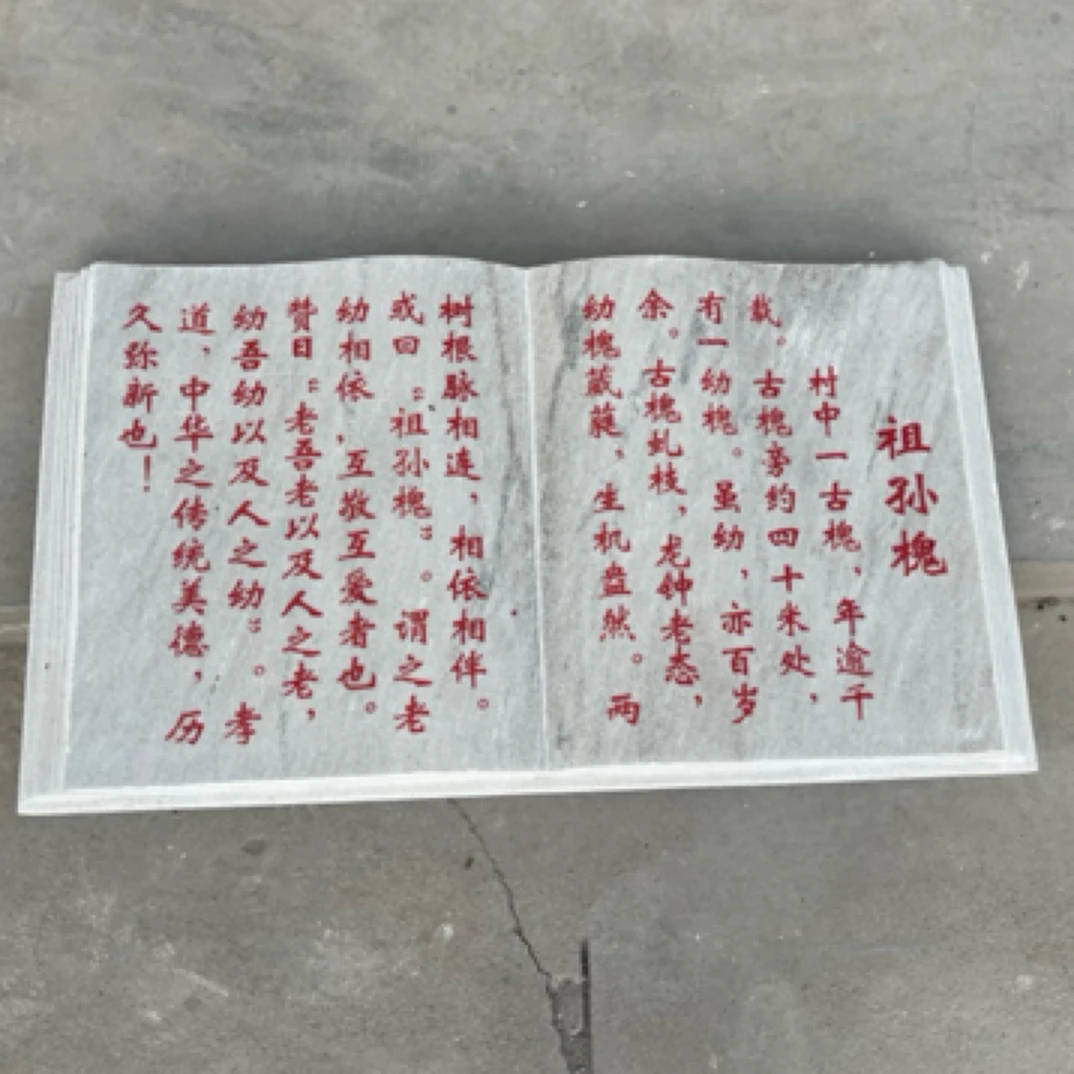 祖孙槐
村中一古槐，年逾千
载。古槐旁约四十米处，
有一幼槐。虽幼，亦百岁
余。古槐虬枝，龙钟老态，
幼槐葳蕤，生机盎然。两
树根脉相连，相依相伴。
或曰“祖孙槐”。谓之老
幼相依，互敬互爱者也。
赞曰“老吾老以及人之老，
幼吾幼以及人之幼”。孝
道，中华之传统美德，历
久弥新也！